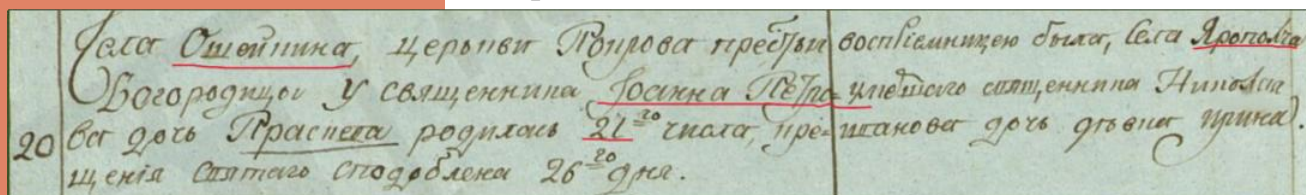 Села Ошейкина, церькви Покрова престыи
Богородицы у священника Іоанна Петро-
20 ва дочь Праскева родилась 21го числа, кре-
щенія святаго сподоблена 26го дня.
воспріемницею была, Села Ярополча
умершаго священника Николая
Иванова дочь девка Ирина.